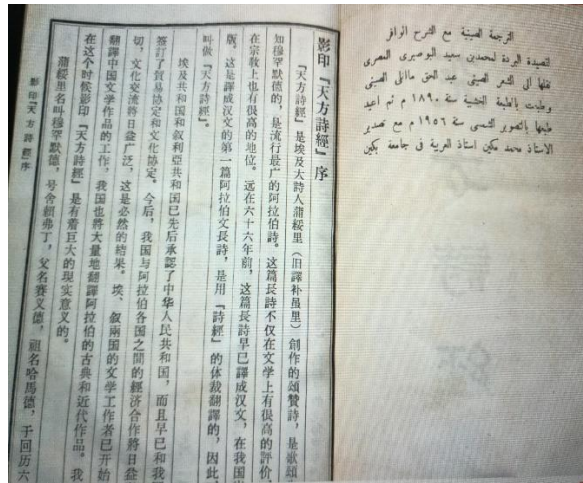 الترجمة الصينية مع الشرح الوافر
لقصيدة البردة لمحمد بن سعيد البوصيرى المصرى
نقلها الى الشعر الصينى عبد الحق ماالى الصينى
وطبعت بالطبعة الخشبية سنة ١٨٩٠ م ثم اعيد
طبعها بالتصوير الشمسى سنة ١٩٥٦ م مع تصدير
الاستاذ محمد مكين استاذ العربية فى جامعة بكين
影印『天方詩經』序
『天方詩經』是埃及大詩人蒲綏里（旧譯补虽里）創作的頌贊詩，是歌頌
知穆罕默德的，是流行最广的阿拉伯詩。这篇長詩不仅在文学上有很高的評价，
在宗敎上也有很高的地位。远在六十六年前，这篇長詩早已譯成汉文，在我国
版。这是譯成汉文的第一篇阿拉伯文長詩，是用『詩經』的体裁翻譯的，因此，
叫做『天方詩經』。
埃及共和国和叙利亞共和国已先后承認了中华人民共和国，而且早已和我
簽訂了貿易协定和文化协定。今后，我国与阿拉伯各国之間的經济合作將日益
切，文化交流將日益广泛，这是必然的結果。埃、叙兩国的文学工作者已开始
翻譯中国文学作品的工作，我国也將大量地翻譯阿拉伯的古典和近代作品。我
在这个时候影印『天方詩經』是有着巨大的現实意义的。
蒲綏里名叫穆罕默德，号舍賴弗丁，父名賽义德，祖名哈馬德，于回历六
影印『天方詩經』序